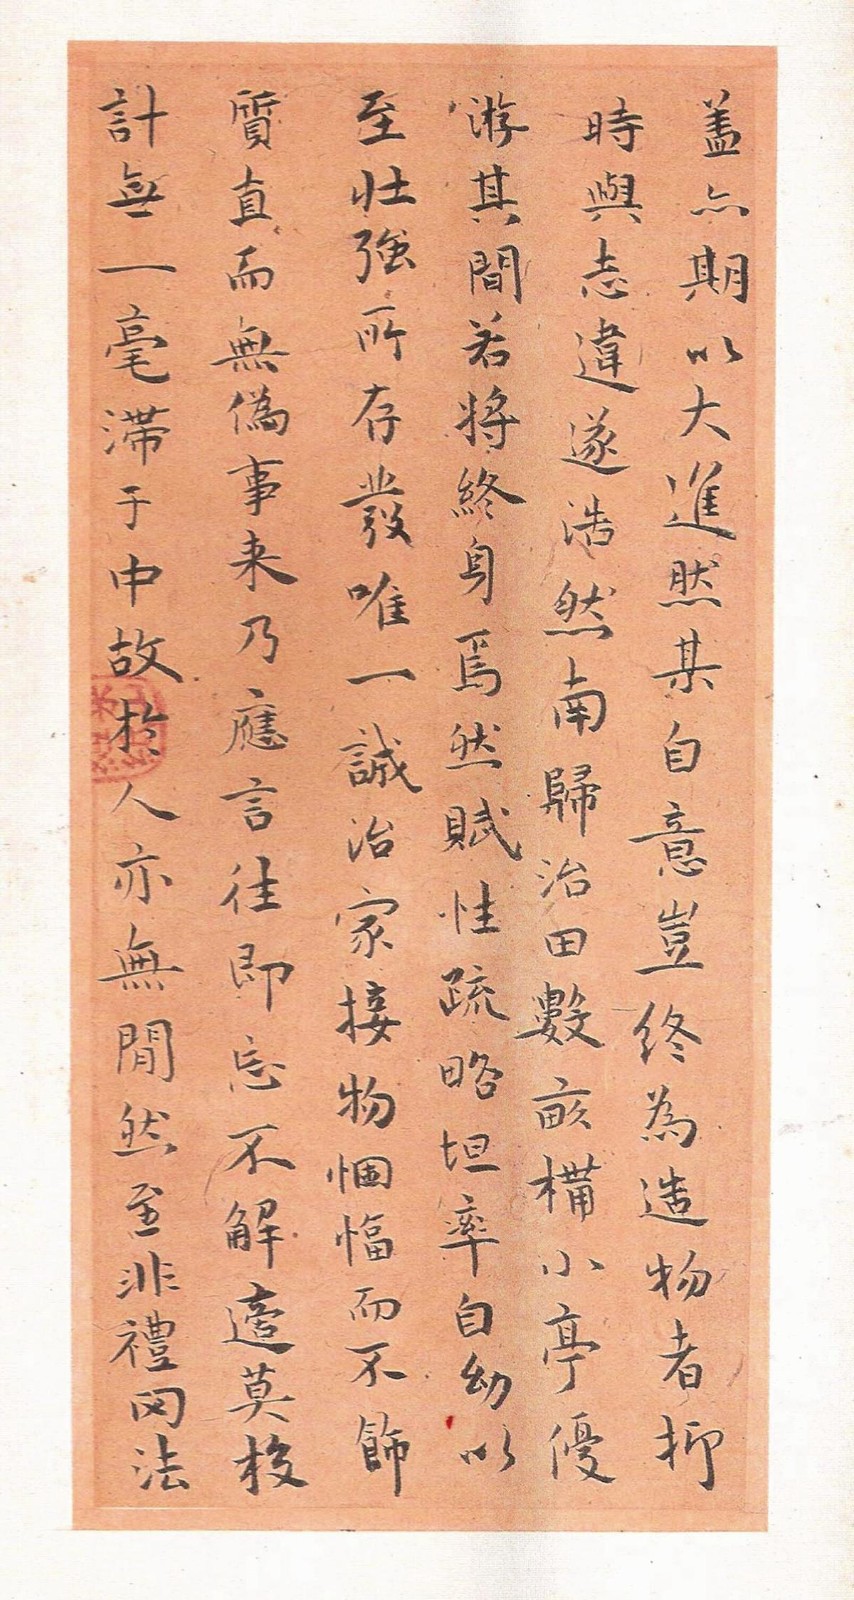 盖亦期以大進然某自意豈終為造物者抑
時與志違遂浩然南歸治田數畝構小亭優
游其間若將終身焉然賦性疏略坦率自幼以
至壯強所存發唯一誠治家接物悃愊而不飾
質直而無偽事来乃應言往即忘不解適莫校
計無一毫滯于中故於人亦無間然至非禮罔法